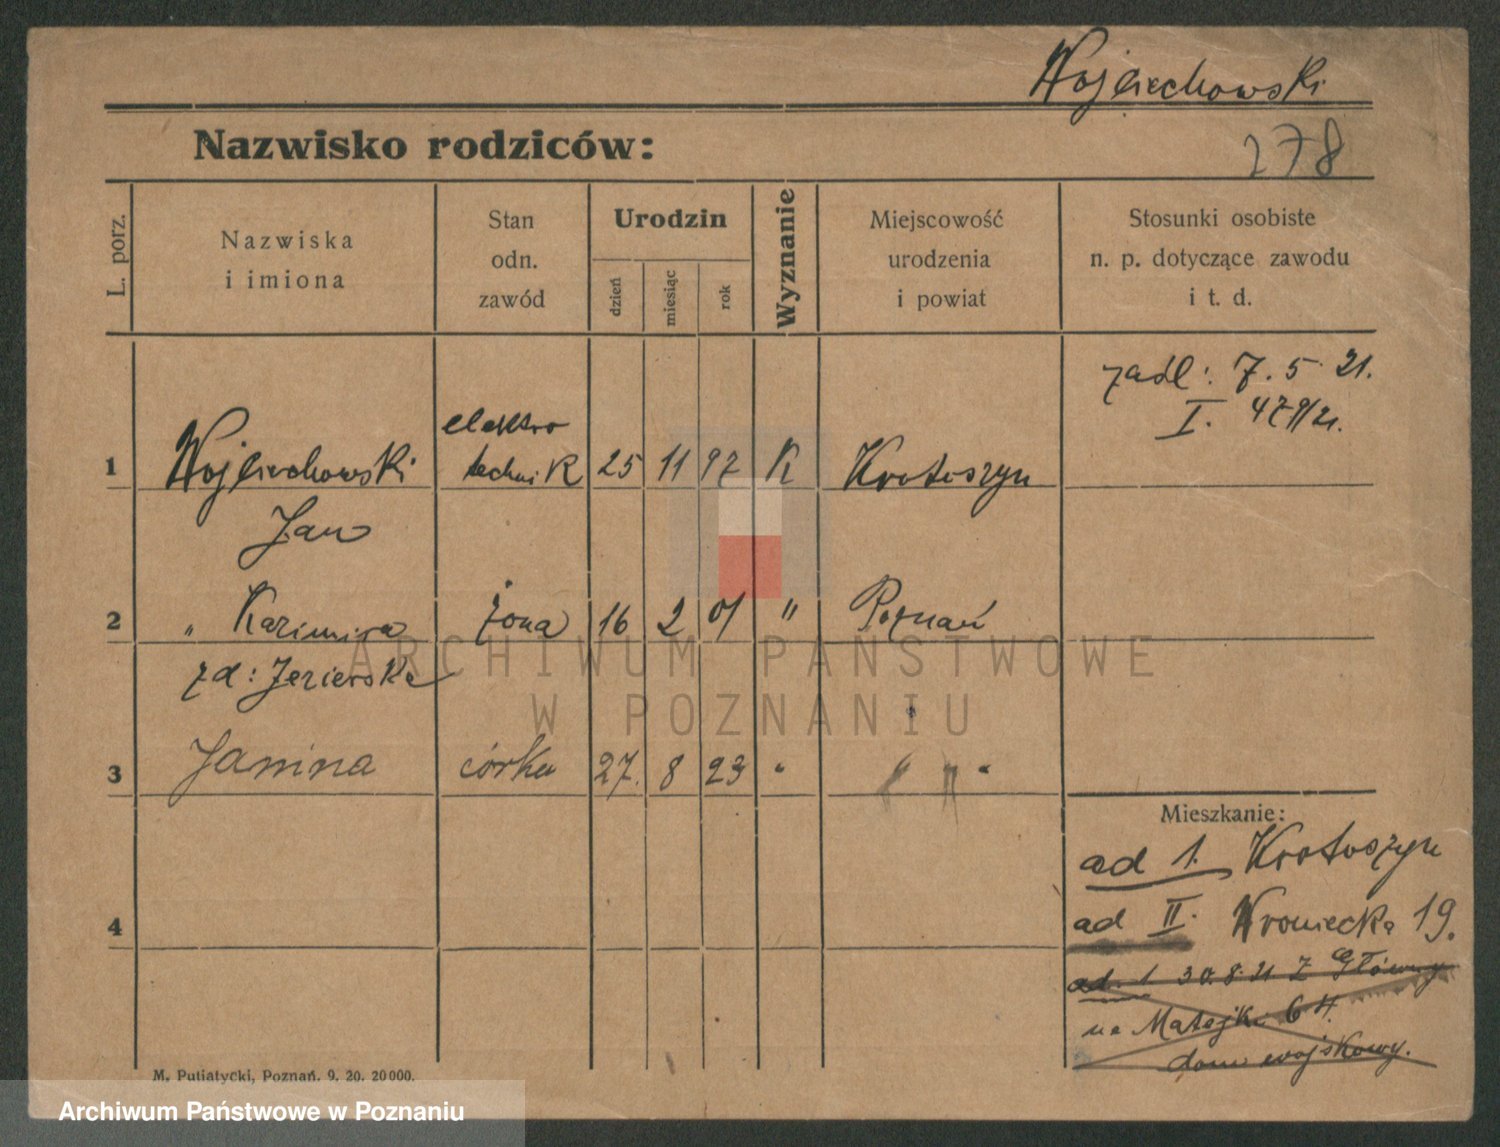 Wojciechowski
Nazwisko rodziców:
278
L. porz.
Nazwiska
i imiona
Stan
odn.
zawód
Urodzin
dzień
miesiąc
rok
Wyznanie
Miejscowość
urodzenia
i powiat
Stosunki osobiste
n. p. dotyczące zawodu
i t. d.
zaśl: 7. 5. 21.
I. 479/21.
elektro
1 Wojciechowski technik 25 11 97 K Krotoszyn
Jan
2 " Kazimira żona 16 2 01 " Poznań
zd: Jezierska
3 Janina córka 27. 8 23 " "
4
Mieszkanie:
ad 1. Krotoszyn
ad II. Wroniecka 19.
ad. 1 30.8.21 z Główny
na Matejki 64.
dom wojskowy.
M. Putiatycki, Poznań. 9. 20. 20000.
ARCHIWUM PAŃSTWOWE
W POZNANIU
Archiwum Państwowe w Poznaniu